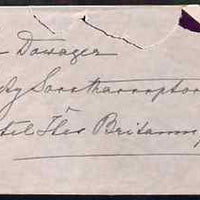 Dowager
Lady Southampton
Hotel Iles Britanniq